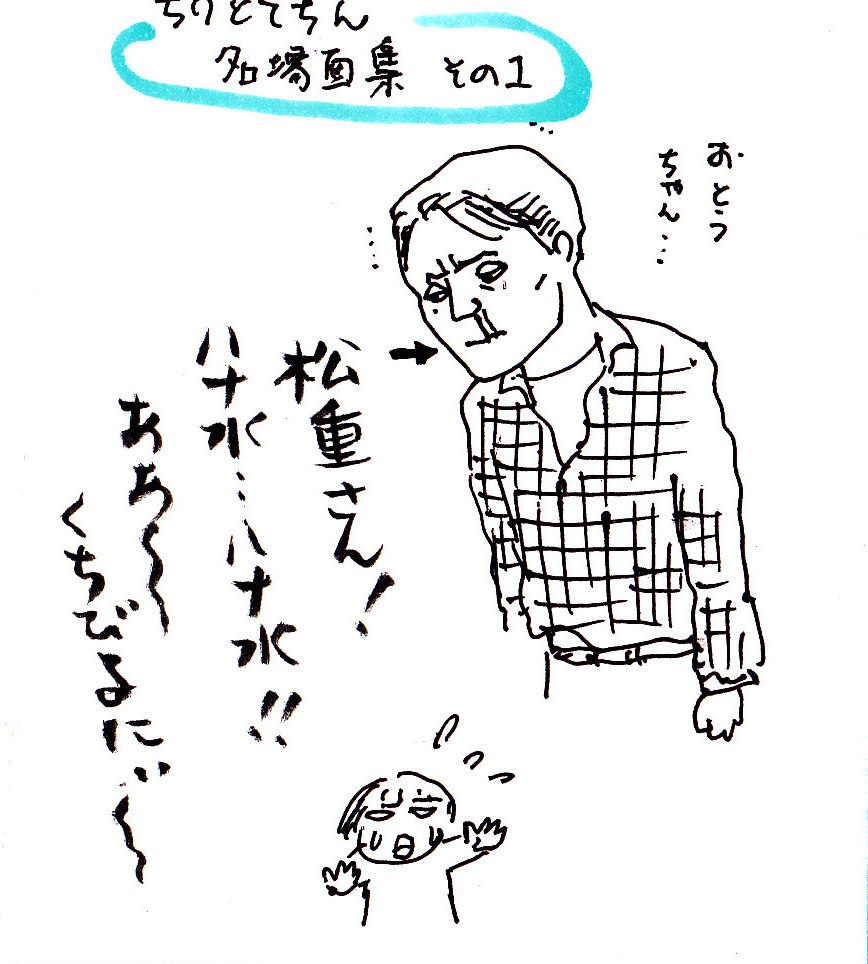 ちりとてちん
名場面集 その1
おとう
ちゃん…
松重さん!
ハナ水…ハナ水!!
あぁ〜〜
くちびるにぃ〜